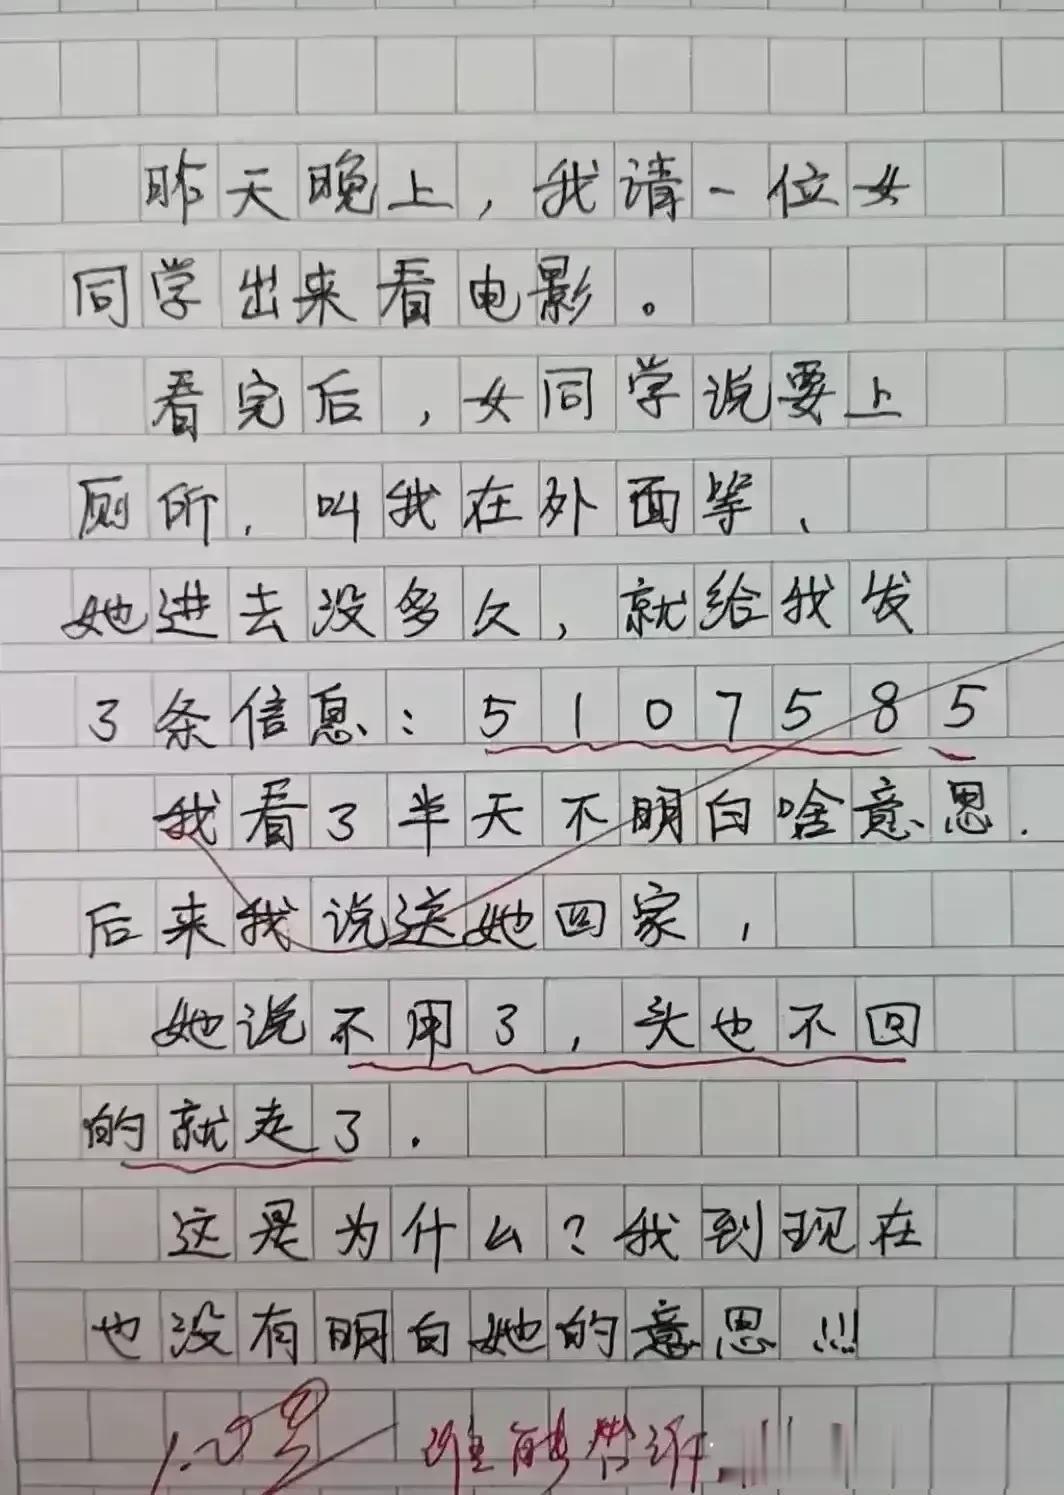 昨天晚上，我请一位女
同学出来看电影。
看完后，女同学说要上
厕所，叫我在外面等、
她进去没多久，就给我发
3条信息：5107585
我看了半天不明白啥意思．
后来我说送她回家，
她说不用了，头也不回
的就走了．
这是为什么？我到现在
也没有明白她的意思!!!
谁能告诉